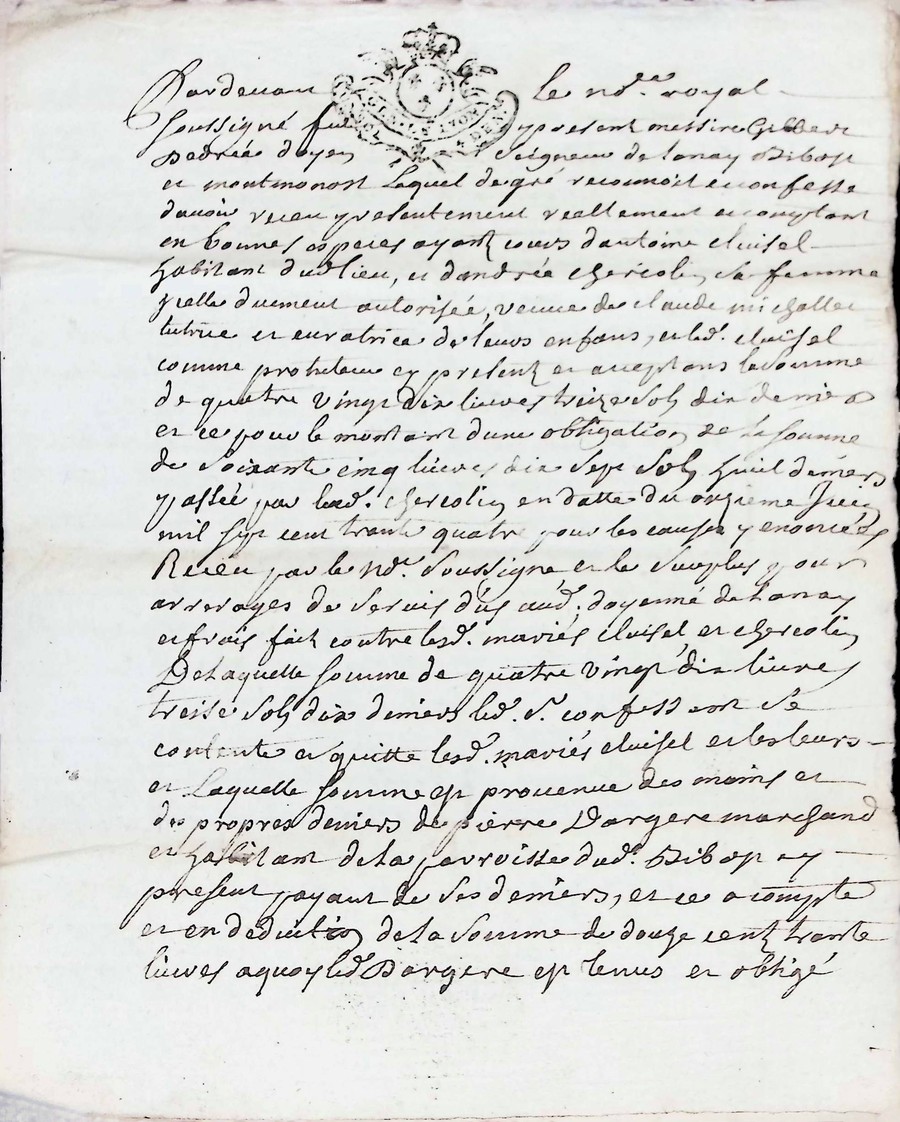 Pardevant le nore. royal
soussigné fut y present messire Gilbert
Dedrée doyen Seigneur de Lanay Dibost
et montmonost Lequel de gré reconnoit et confesse
davoir receu presentement reellement et comptant
en bonnes especes ayant cours dantoine cluisel
habitant dudt lieu, et dandrée chercolin sa femme
jcelle duement autorisée, veuve de claude michallet
tutrice et curatrice de leurs enfans, et led. cluisel
comme protuteur cy present et acceptans la somme
de quatre vingt dix livres treize sols dix deniers
et ce pour le montant dune obligation de la somme
de soixante cinq livres dix sept sols huit deniers
passée par lad. chercolin en datte du onzieme Juin
mil sept cent trante quatre pour les causes y enoncées
Receu par le nore. soussigné et le surplus pour
arrerages de servis dûs aud. doyenné de Lanay
et frais fait contre lesd. mariés cluisel et chercolin
De laquelle somme de quatre vingt dix livres
treise sols dix deniers led. sr. confessant se
contente et quitte lesd. mariés cluisel et les leurs
et Laquelle somme est provenue des mains et
des propres deniers de pierre Dargere marchand
et habitant de la parroisse dud. Dibost cy
present payant de ses deniers, et ce a compte
et en deduction de la somme de douze cents trante
livres a quoy led. Dargere est tenus et obligé